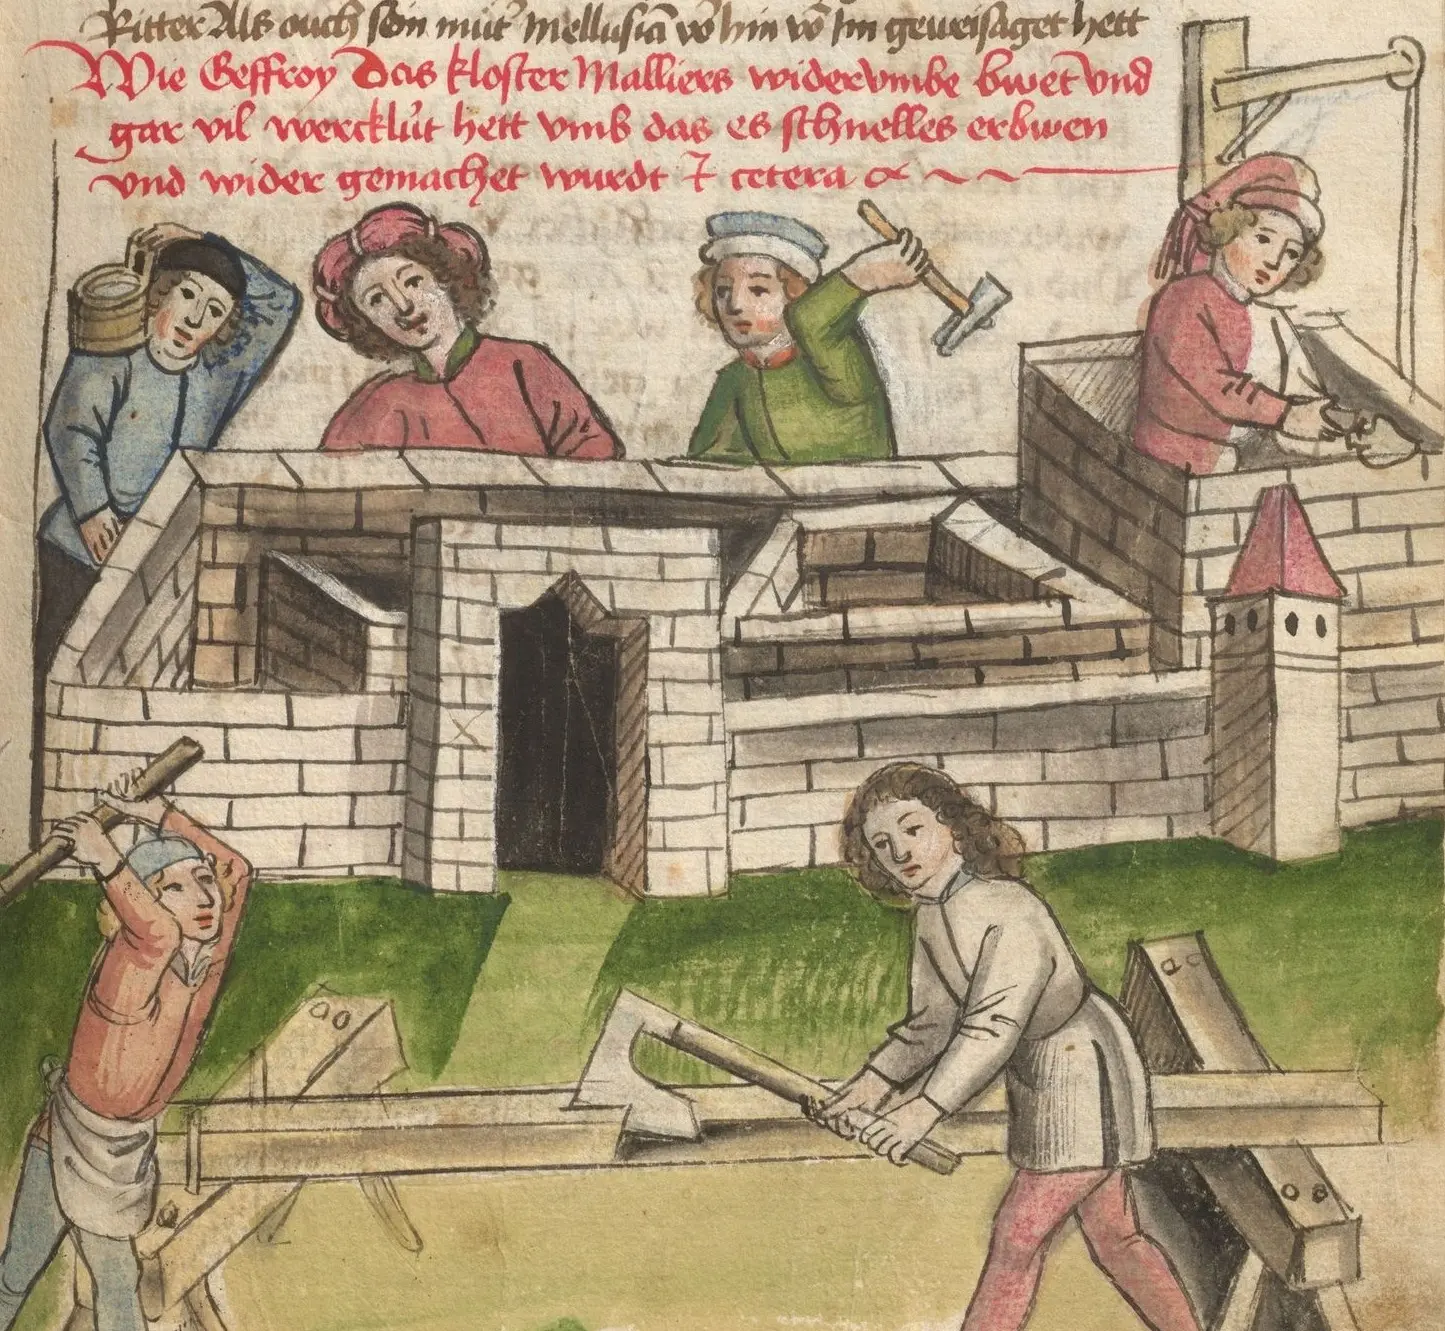 Ritter Als ouch sin můt͛ mellusiā vō hin vō Im geweisaget hett
Wie Geffroy Das kloster Malliers widervmbe bwet vnd
gar vil wercklüt hett vmb das es schnelles erbwen
vnd wider gemachet wurdt ⁊ cetera